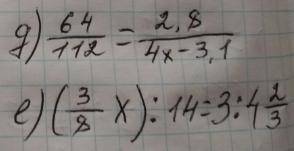 g) 64/112 = 2,8/4x-3,1
e) (3/8 x) : 14 = 3 : 4 2/3